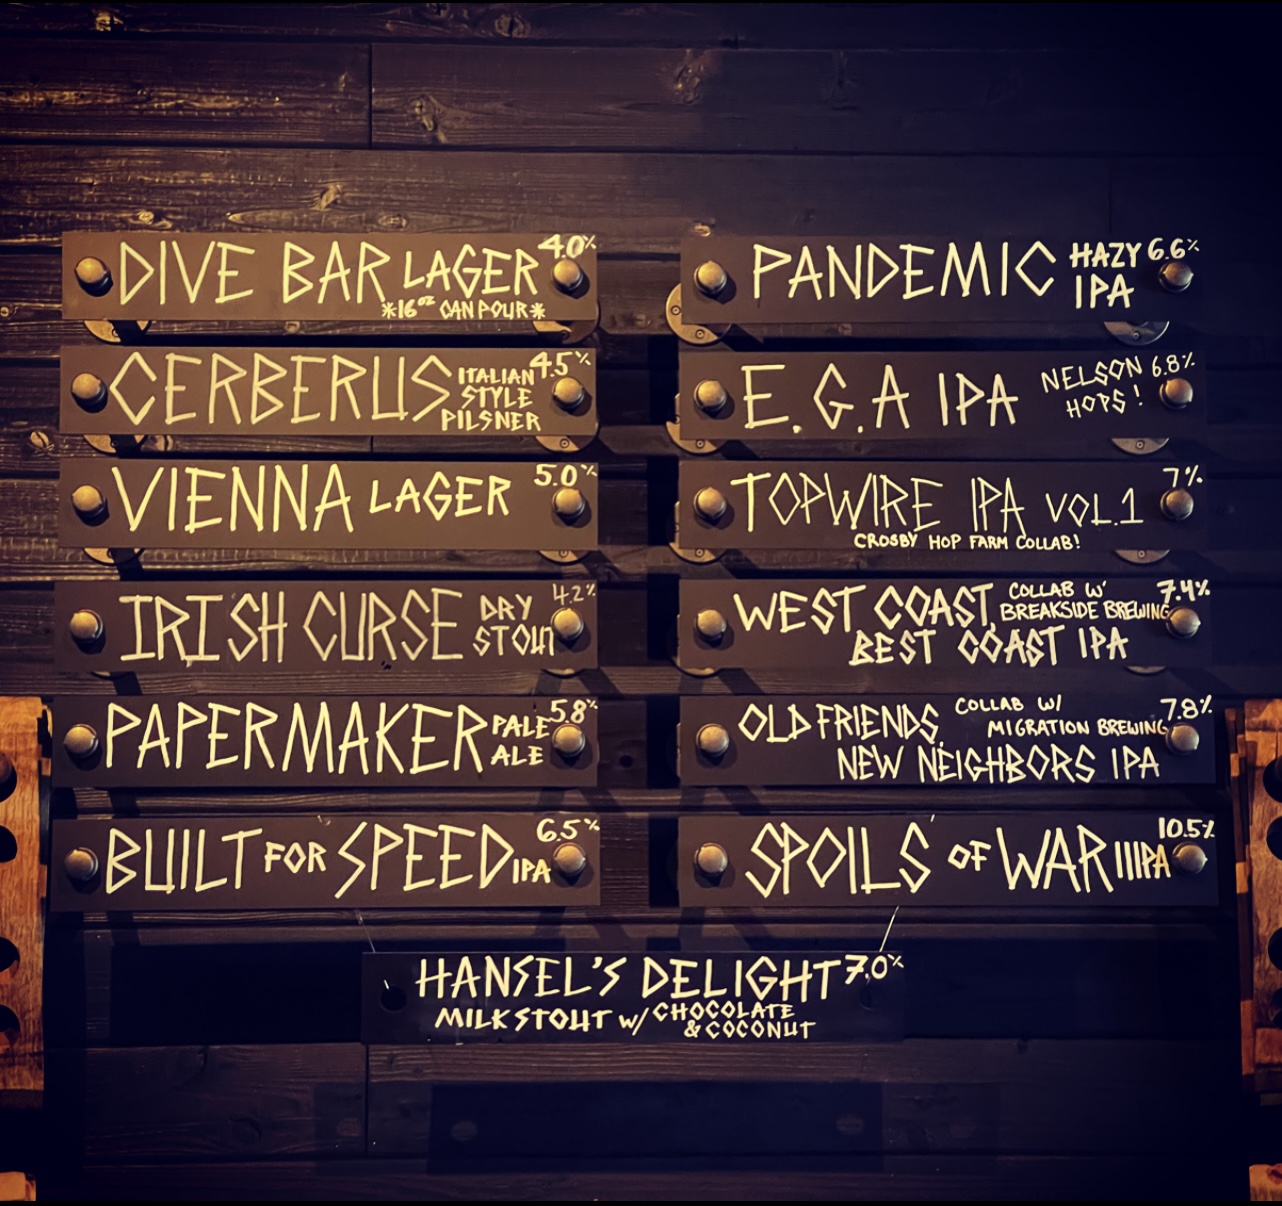 DIVE BAR LAGER 4.0%
*16oz CAN POUR*
CERBERUS ITALIAN STYLE PILSNER 4.5%
VIENNA LAGER 5.0%
IRISH CURSE DRY STOUT 4.2%
PAPERMAKER PALE ALE 5.8%
BUILT FOR SPEED IPA 6.5%
PANDEMIC HAZY IPA 6.6%
E.G.A IPA NELSON HOPS! 6.8%
TOPWIRE IPA VOL.1 7%
CROSBY HOP FARM COLLAB!
WEST COAST, COLLAB W' BREAKSIDE BREWING 7.4%
BEST COAST IPA
OLD FRIENDS, COLLAB W/ MIGRATION BREWING 7.8%
NEW NEIGHBORS IPA
SPOILS OF WAR IIIPA 10.5%
HANSEL'S DELIGHT 7.0%
MILK STOUT W/ CHOCOLATE & COCONUT